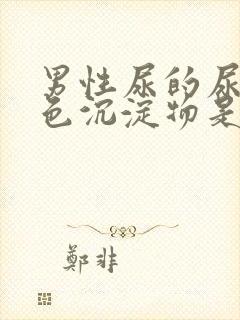 男性尿的尿
色沉淀物是
鄭非